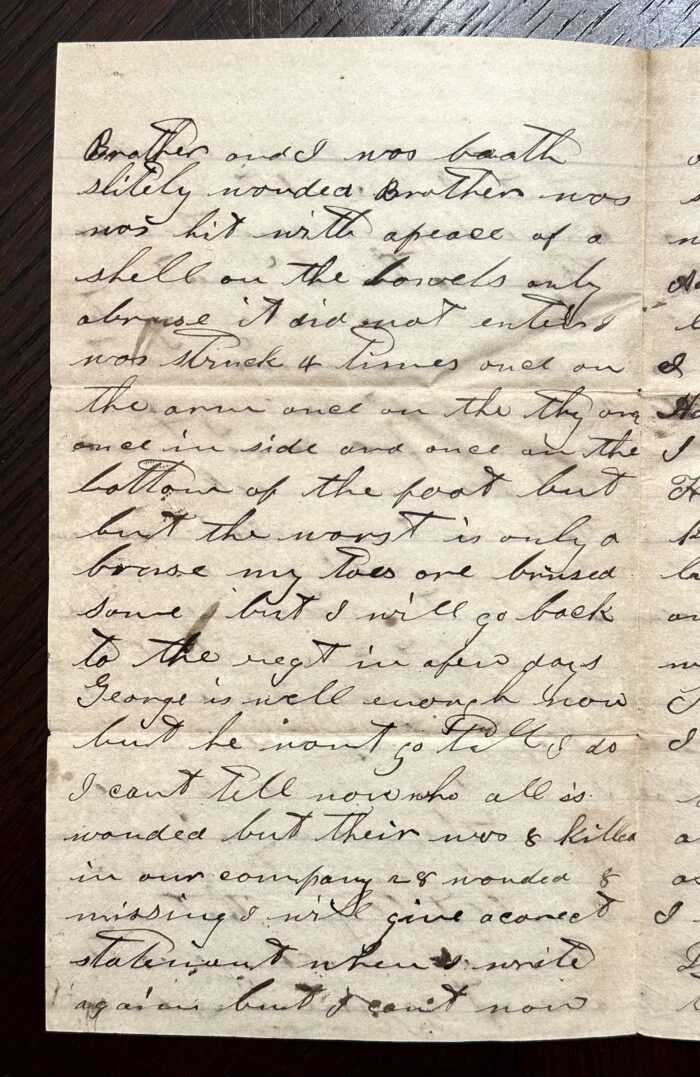 Brother and I was baath
slitely wonded Brother was
was hit with apeace of a
shell on the bowels only
abruse it did not enter I
was struck 4 times once on
the arm once on the thy
once in side and once on the
bottom of the foot but
but the worst is only a
bruse my toes are brused
some but I will go back
to the regt in afew days
George is well enough now
but he wont go till I do
I cant tell now who all is
wonded but their was 8 killed
in our company 28 wonded 8
missing I will give acorect
statement when I write
again but I cant now